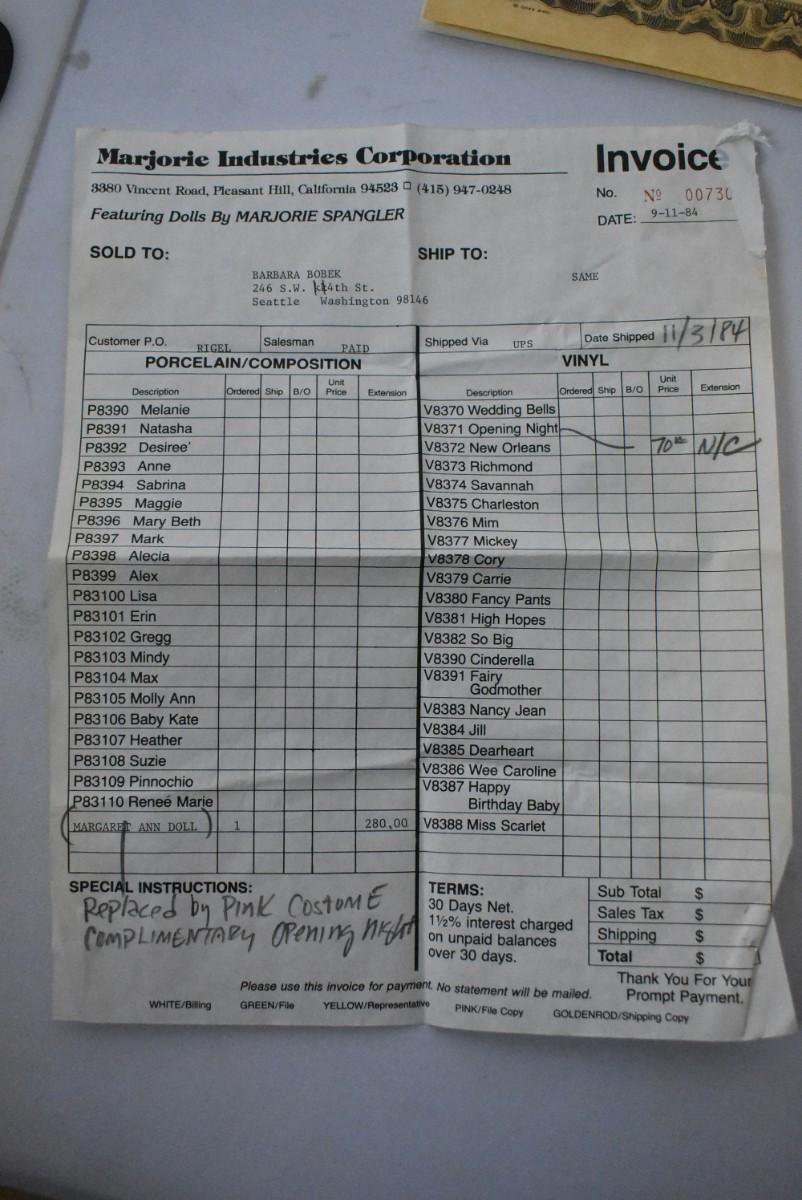 Marjorie Industries Corporation
Invoice
3380 Vincent Road, Pleasant Hill, California 94523 □ (415) 947-0248
No. Nº 00730
Featuring Dolls By MARJORIE SPANGLER
DATE: 9-11-84
SOLD TO:
SHIP TO:
BARBARA BOBEK
246 S.W. 4th St.
Seattle Washington 98146
SAME
Customer P.O. RIGEL Salesman PAID Shipped Via UPS Date Shipped 11/3/84
PORCELAIN/COMPOSITION
Description Ordered Ship B/O Unit Price Extension
P8390 Melanie
P8391 Natasha
P8392 Desiree'
P8393 Anne
P8394 Sabrina
P8395 Maggie
P8396 Mary Beth
P8397 Mark
P8398 Alecia
P8399 Alex
P83100 Lisa
P83101 Erin
P83102 Gregg
P83103 Mindy
P83104 Max
P83105 Molly Ann
P83106 Baby Kate
P83107 Heather
P83108 Suzie
P83109 Pinnochio
P83110 Reneé Marie
(MARGARET ANN DOLL) 1 280,00
VINYL
Description Ordered Ship B/O Unit Price Extension
V8370 Wedding Bells
V8371 Opening Night
V8372 New Orleans 70 N/C
V8373 Richmond
V8374 Savannah
V8375 Charleston
V8376 Mim
V8377 Mickey
V8378 Cory
V8379 Carrie
V8380 Fancy Pants
V8381 High Hopes
V8382 So Big
V8390 Cinderella
V8391 Fairy
Godmother
V8383 Nancy Jean
V8384 Jill
V8385 Dearheart
V8386 Wee Caroline
V8387 Happy
Birthday Baby
V8388 Miss Scarlet
SPECIAL INSTRUCTIONS:
Replaced by Pink COSTUME
COMPLIMENTARY Opening Night
TERMS:
30 Days Net.
1½% interest charged
on unpaid balances
over 30 days.
Sub Total $
Sales Tax $
Shipping $
Total $
Please use this invoice for payment. No statement will be mailed.
Thank You For Your
Prompt Payment.
WHITE/Billing GREEN/File YELLOW/Representative PINK/File Copy GOLDENROD/Shipping Copy